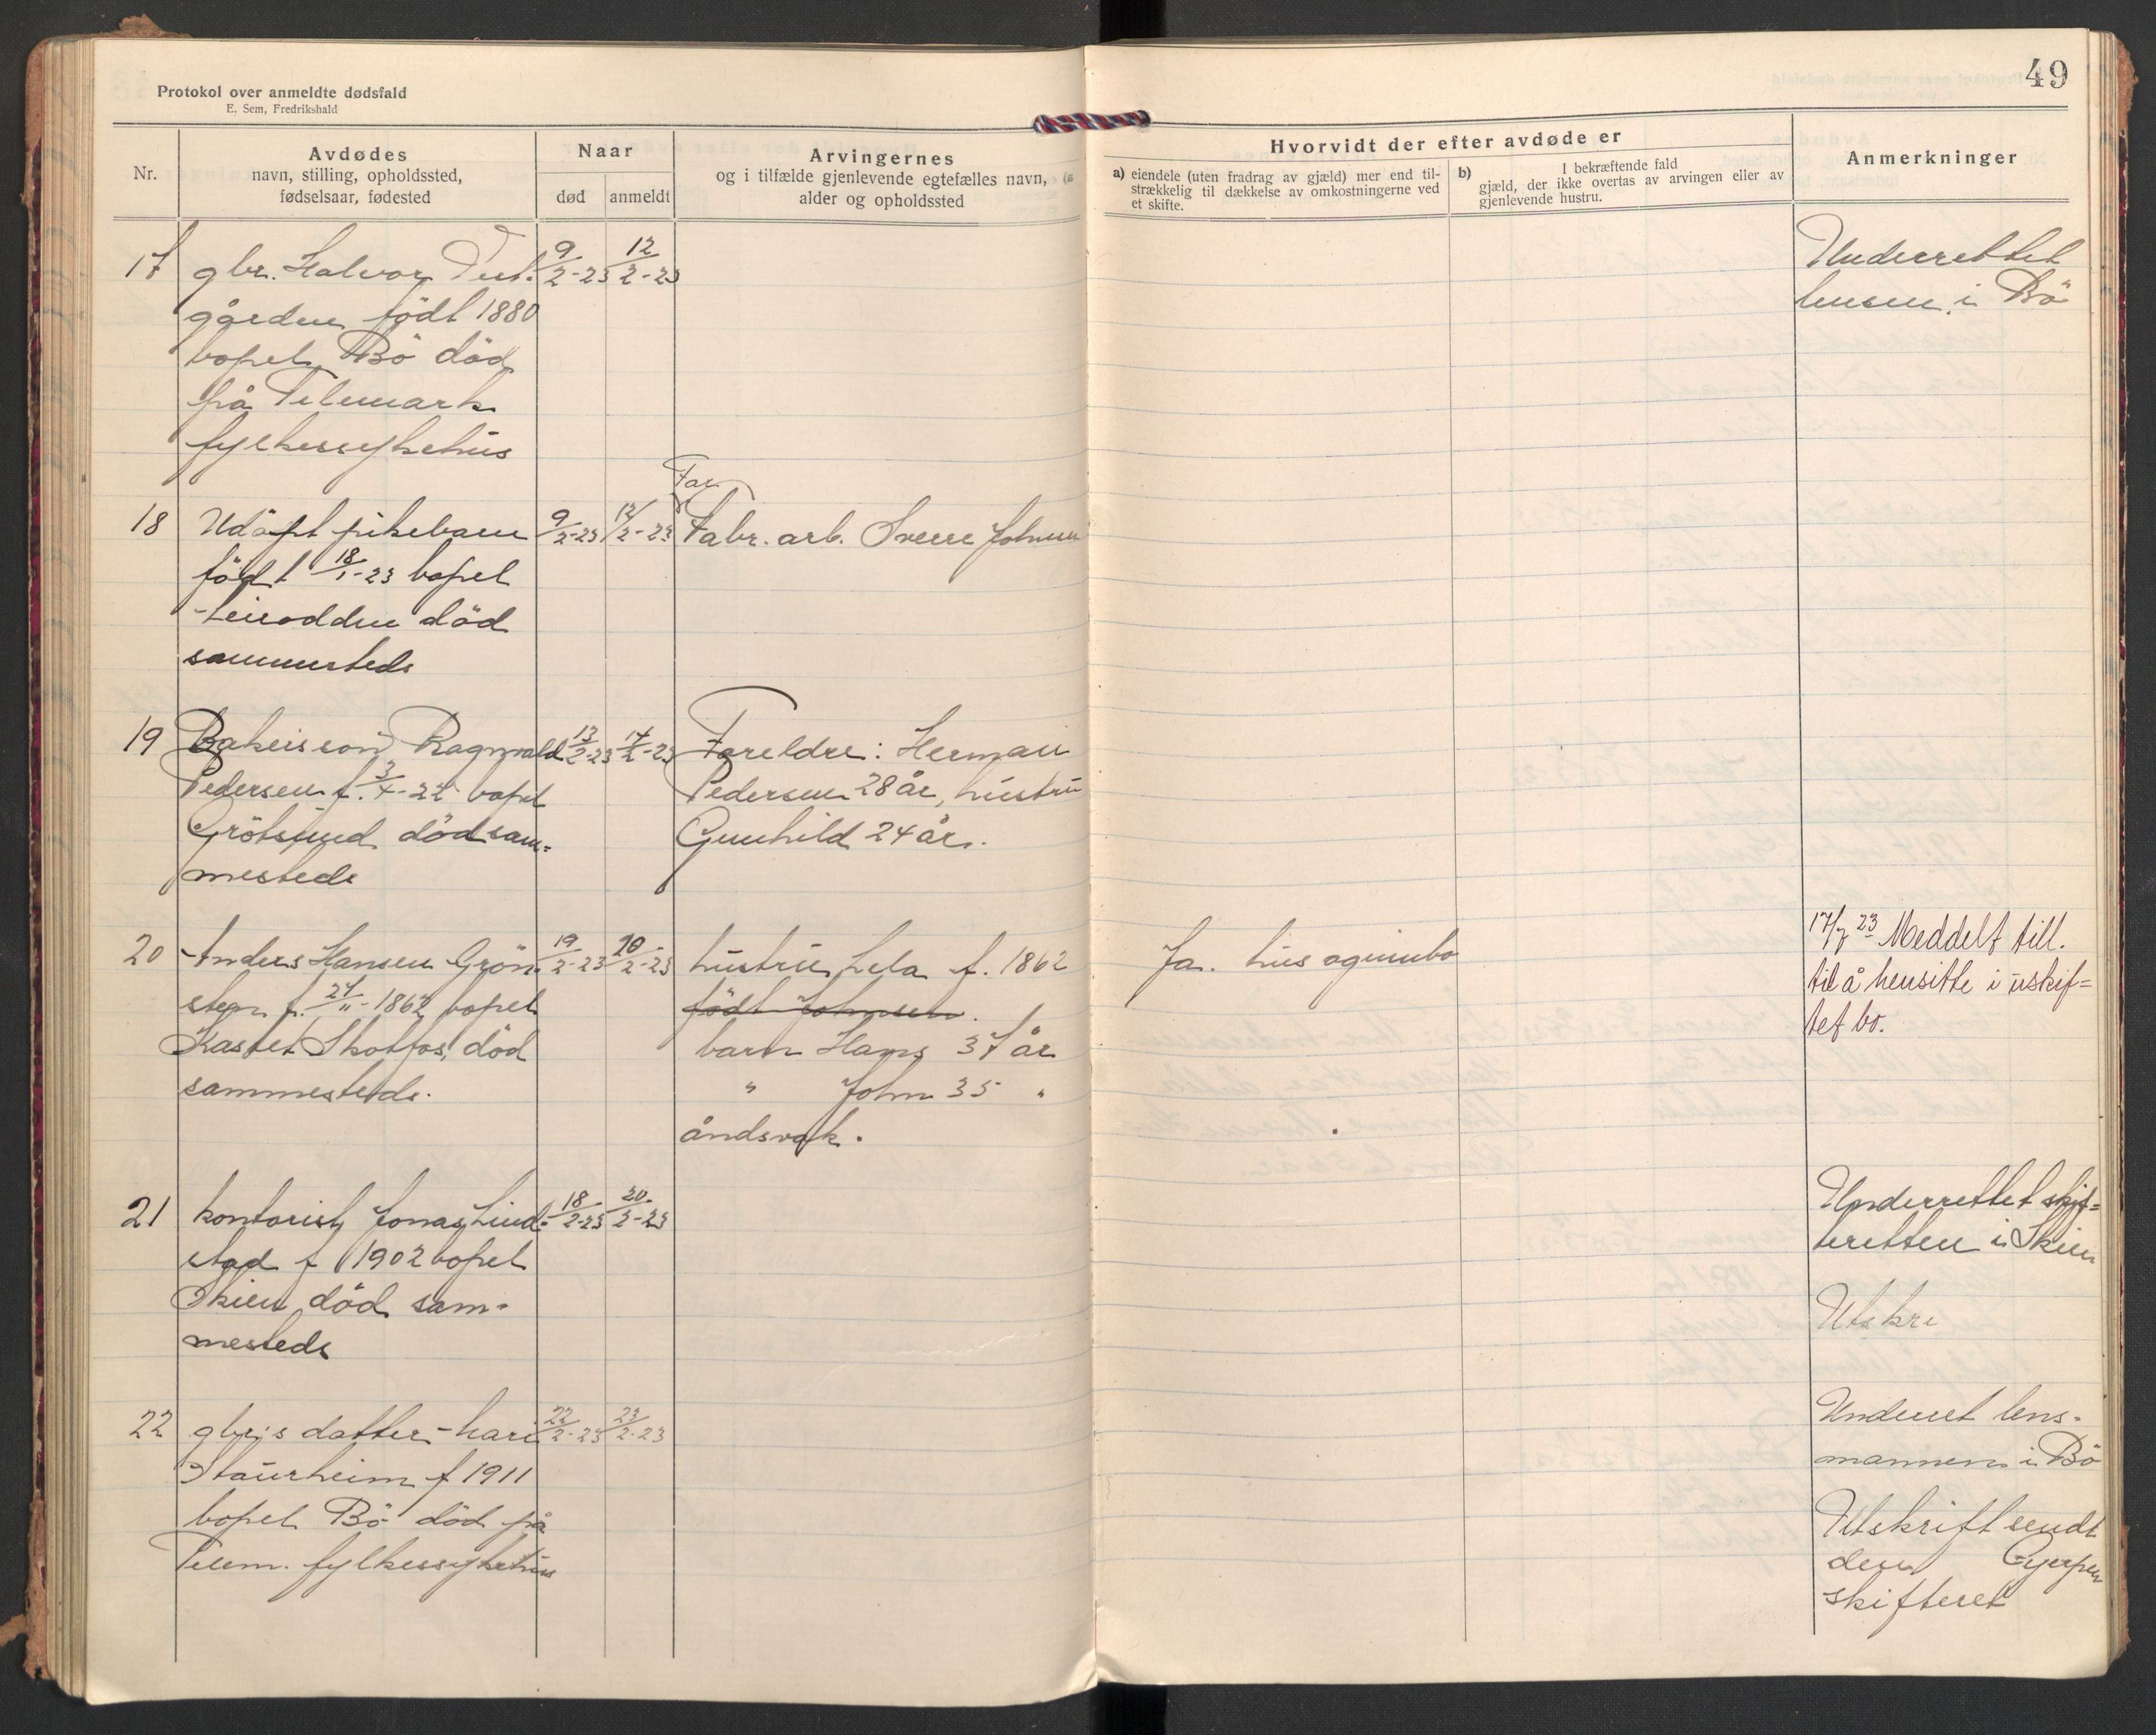 Protokol over anmeldte dødsfald
E. Sem, Fredrikshald
49
Nr.
Avdødes
navn, stilling, opholdssted,
fødselsaar, fødested
Naar
død
anmeldt
Arvingernes
og i tilfælde gjenlevende egtefælles navn,
alder og opholdssted
Hvorvidt der efter avdøde er
a) eiendele (uten fradrag av gjæld) mer end til-
strækkelig til dækkelse av omkostningerne ved
et skifte.
b) I bekræftende fald
gjæld, der ikke overtas av arvingen eller av
gjenlevende hustru.
Anmerkninger
17 gbr. Halvor 9/2-23 12/2-23
gården født 1880
bopel Bö död
på Telemark
fylkessykehus
Underrettet
lensm. i Bö
Far
18 Udöpt pikebarn 9/2-23 12/2-23 Fabr. arb. Sverre Johnsen
född 18/1-23 bopel
død
sammesteds
19 Ragnvald 13/2-23 17/2-23 Foreldre: Herman
Pedersen f. bopel Pedersen 28 år, hustru
Grötsund död sam= Gunhild 24 år.
mesteds
20 Anders Hansen Grön- 19/2-23 20/2-23 hustru Lela f. 1862
Ja. hus og innbo
17/7 23 Meddelt till.
til å hensitte i uskif=
tet bo.
sten f. 24/11-1862 bopel född Johnsen.
Kastet Skotfos, död barn Hans 37 år
sammesteds. " John 35 "
åndsvak.
21 kontorist Jonas Lind- 18/2-23 20/2-23
stad f 1902 bopel
Skien död sam-
mesteds
Underrettet skif=
teretten i Skien
Utskri
22 gbr.s datter 22/2-23 23/2-23
Staurheim f 1911
bopel Bö död på
Telem. fylkessykehus
Underret lens-
mannen i Bö
Utskrift sendt
den Gjerpen
skifteret